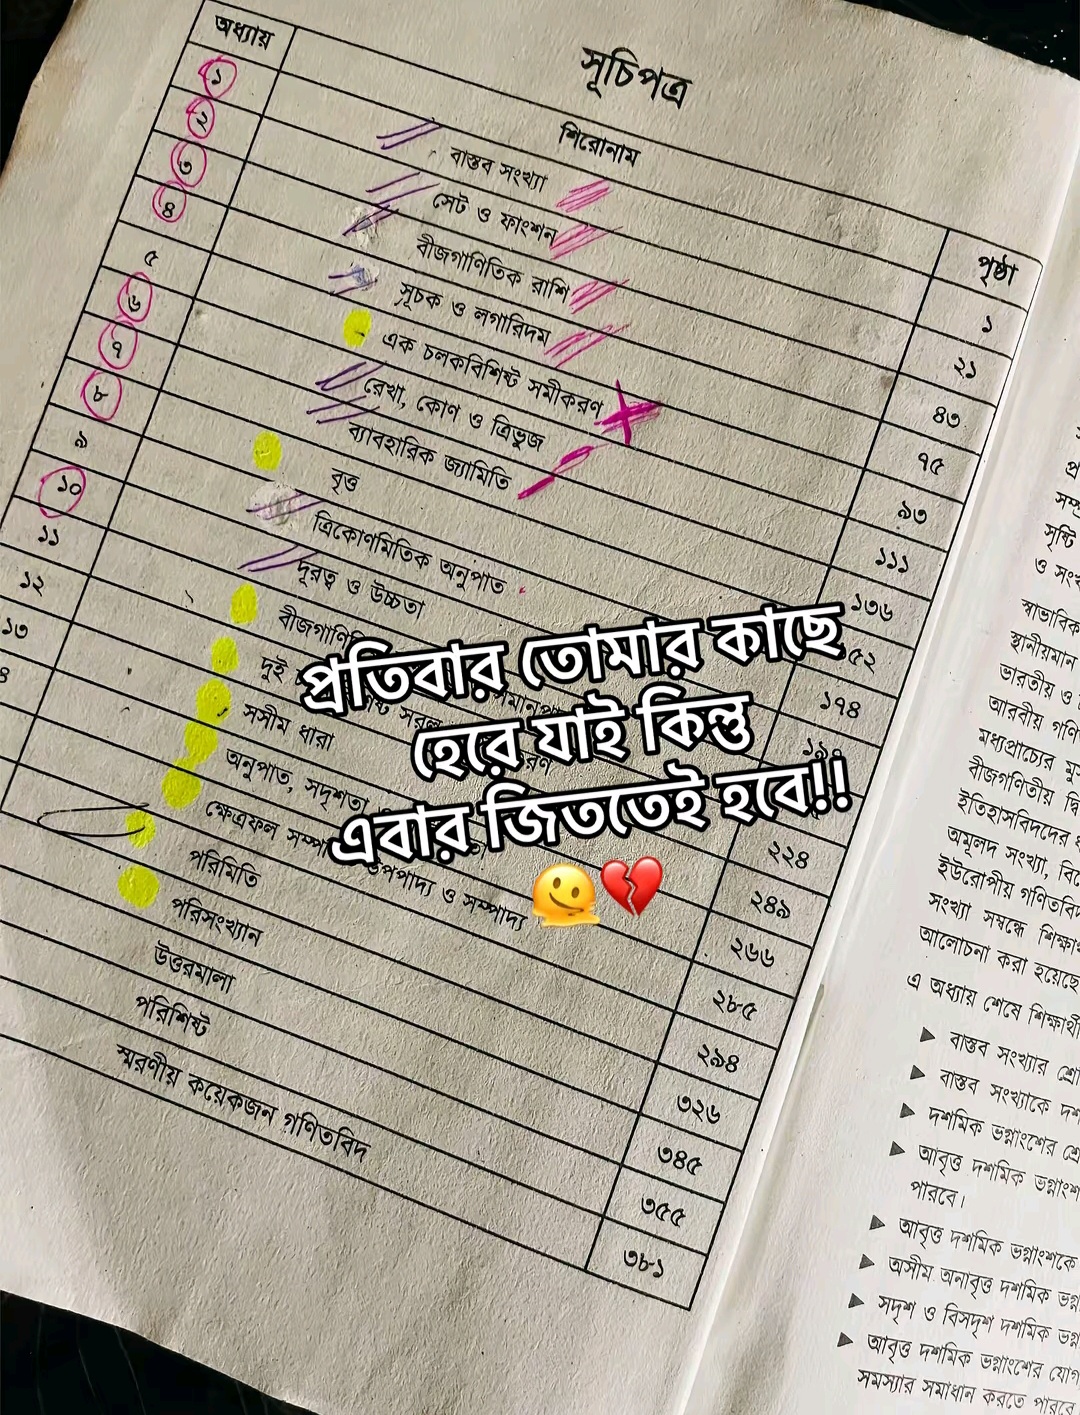 সূচিপত্র
অধ্যায় শিরোনাম পৃষ্ঠা
১ বাস্তব সংখ্যা ১
২ সেট ও ফাংশন ২১
৩ বীজগাণিতিক রাশি ৪৩
৪ সূচক ও লগারিদম ৭৫
৫ এক চলকবিশিষ্ট সমীকরণ ৯৩
৬ রেখা, কোণ ও ত্রিভুজ ১১১
৭ ব্যাবহারিক জ্যামিতি ১৩৬
৮ বৃত্ত ৫২
৯ ত্রিকোণমিতিক অনুপাত ১৭৪
১০ দূরত্ব ও উচ্চতা
১১ বীজগাণি
১২ দুই সরল
১৩ সসীম ধারা ২২৪
৪ অনুপাত, সদৃশতা ২৪৯
ক্ষেত্রফল সম্প উপপাদ্য ও সম্পাদ্য ২৬৬
পরিমিতি ২৮৫
পরিসংখ্যান ২৯৪
উত্তরমালা ৩২৬
পরিশিষ্ট ৩৪৫
স্মরণীয় কয়েকজন গণিতবিদ ৩৫৫
৩৮১
প্রতিবার তোমার কাছে
হেরে যাই কিন্তু
এবার জিততেই হবে!!
🫠💔
সৃষ্টি
ও সংখ
স্বাভাবিক
স্থানীয়মান
ভারতীয় ও
আরবীয় গণি
মধ্যপ্রাচ্যের মু
বীজগণিতীয় দ্বি
ইতিহাসবিদদের
অমূলদ সংখ্যা, বি
ইউরোপীয় গণিতবি
সংখ্যা সম্বন্ধে শিক্ষা
আলোচনা করা হয়েছে
এ অধ্যায় শেষে শিক্ষার্থী
▶ বাস্তব সংখ্যার শ্রে
▶ বাস্তব সংখ্যাকে দশ
▶ দশমিক ভগ্নাংশের শ্রে
▶ আবৃত্ত দশমিক ভগ্নাংশ
পারবে।
▶ আবৃত্ত দশমিক ভগ্নাংশকে
▶ অসীম অনাবৃত্ত দশমিক ভগ্ন
▶ সদৃশ ও বিসদৃশ দশমিক ভগ্ন
▶ আবৃত্ত দশমিক ভগ্নাংশের যোগ
সমস্যার সমাধান করতে পারবে